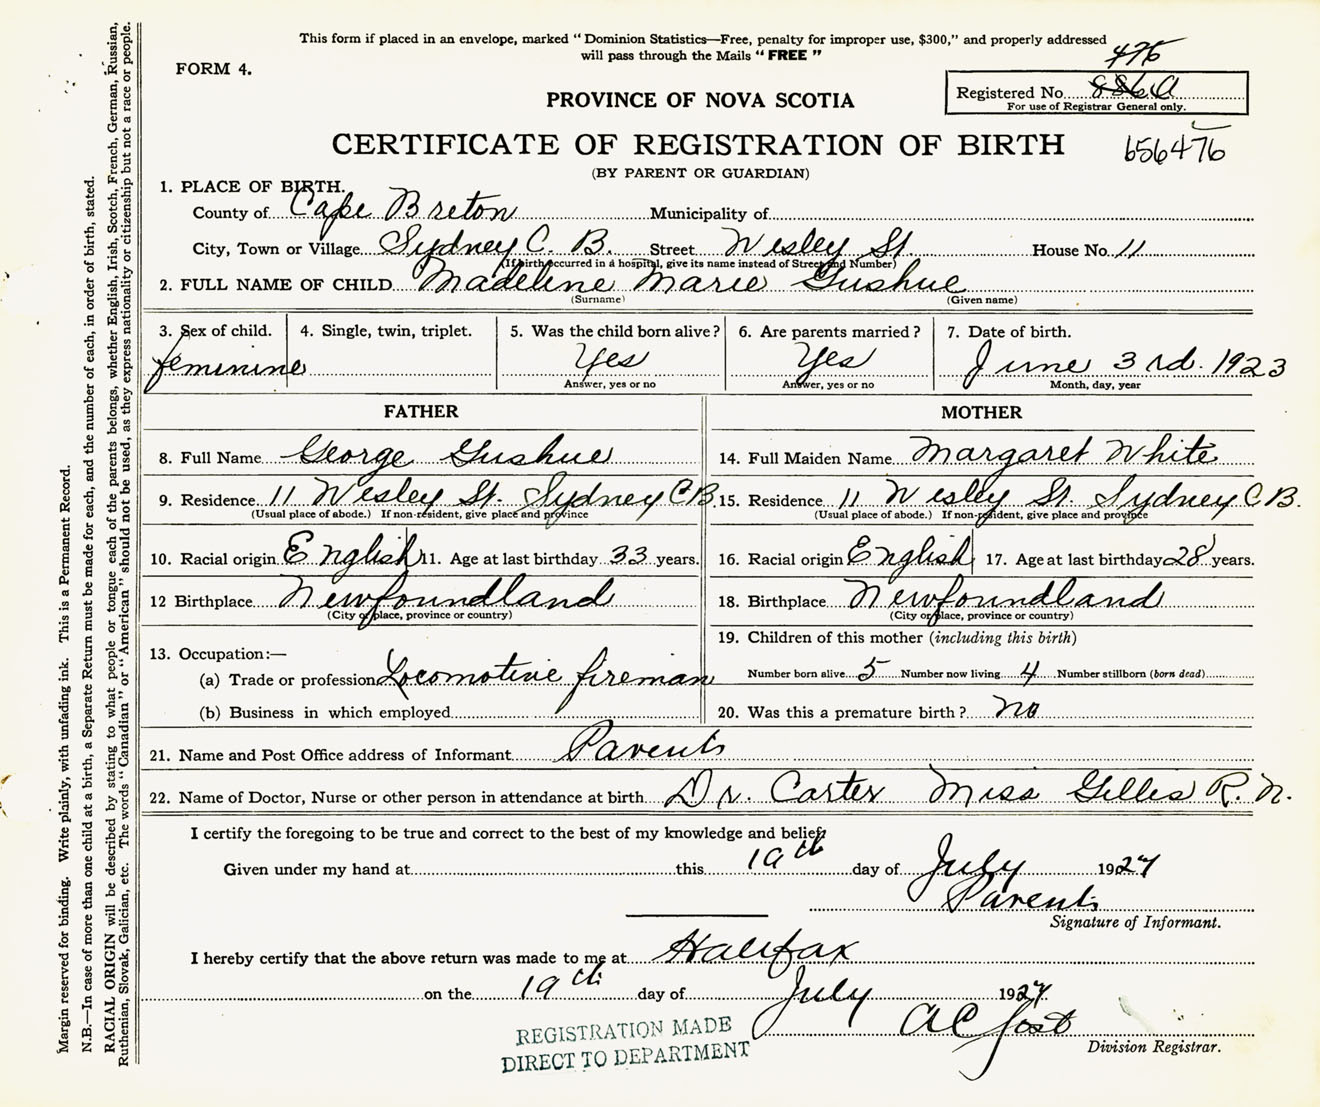 This form if placed in an envelope, marked "Dominion Statistics—Free, penalty for improper use, $300," and properly addressed
will pass through the Mails "FREE"
476
FORM 4.
Registered No. 886a
For use of Registrar General only.
PROVINCE OF NOVA SCOTIA
CERTIFICATE OF REGISTRATION OF BIRTH
656476
(BY PARENT OR GUARDIAN)
1. PLACE OF BIRTH.
County of Cape Breton Municipality of
City, Town or Village Sydney C. B. Street Wesley St House No. 11
(If birth occurred in a hospital, give its name instead of Street and Number)
2. FULL NAME OF CHILD Madeline Marie Gushue
(Surname) (Given name)
3. Sex of child. 4. Single, twin, triplet. 5. Was the child born alive? 6. Are parents married? 7. Date of birth.
feminine Yes Yes June 3rd. 1923
Answer, yes or no Answer, yes or no Month, day, year
FATHER MOTHER
8. Full Name George Gushue 14. Full Maiden Name Margaret White
9. Residence 11 Wesley St. Sydney C B. 15. Residence 11 Wesley St. Sydney C B.
(Usual place of abode.) If non-resident, give place and province (Usual place of abode.) If non-resident, give place and province
10. Racial origin English 11. Age at last birthday 33 years. 16. Racial origin English 17. Age at last birthday 28 years.
12 Birthplace Newfoundland 18. Birthplace Newfoundland
(City or place, province or country) (City or place, province or country)
13. Occupation:— 19. Children of this mother (including this birth)
(a) Trade or profession Locomotive fireman Number born alive 5 Number now living 4 Number stillborn (born dead)
(b) Business in which employed 20. Was this a premature birth? no
21. Name and Post Office address of Informant Parents
22. Name of Doctor, Nurse or other person in attendance at birth Dr. Carter Miss Gillis R. N.
I certify the foregoing to be true and correct to the best of my knowledge and belief.
Given under my hand at this 19th day of July 1927
Parents
Signature of Informant.
I hereby certify that the above return was made to me at Halifax
on the 19th day of July 1927.
A C Jost
Division Registrar.
REGISTRATION MADE
DIRECT TO DEPARTMENT
Margin reserved for binding. Write plainly, with unfading ink. This is a Permanent Record.
N.B.—In case of more than one child at a birth, a Separate Return must be made for each, and the number of each, in order of birth, stated.
RACIAL ORIGIN will be described by stating to what people or tongue each of the parents belongs, whether English, Irish, Scotch, French, German, Russian,
Ruthenian, Slovak, Galician, etc. The words "Canadian" or "American" should not be used, as they express nationality or citizenship but not a race or people.